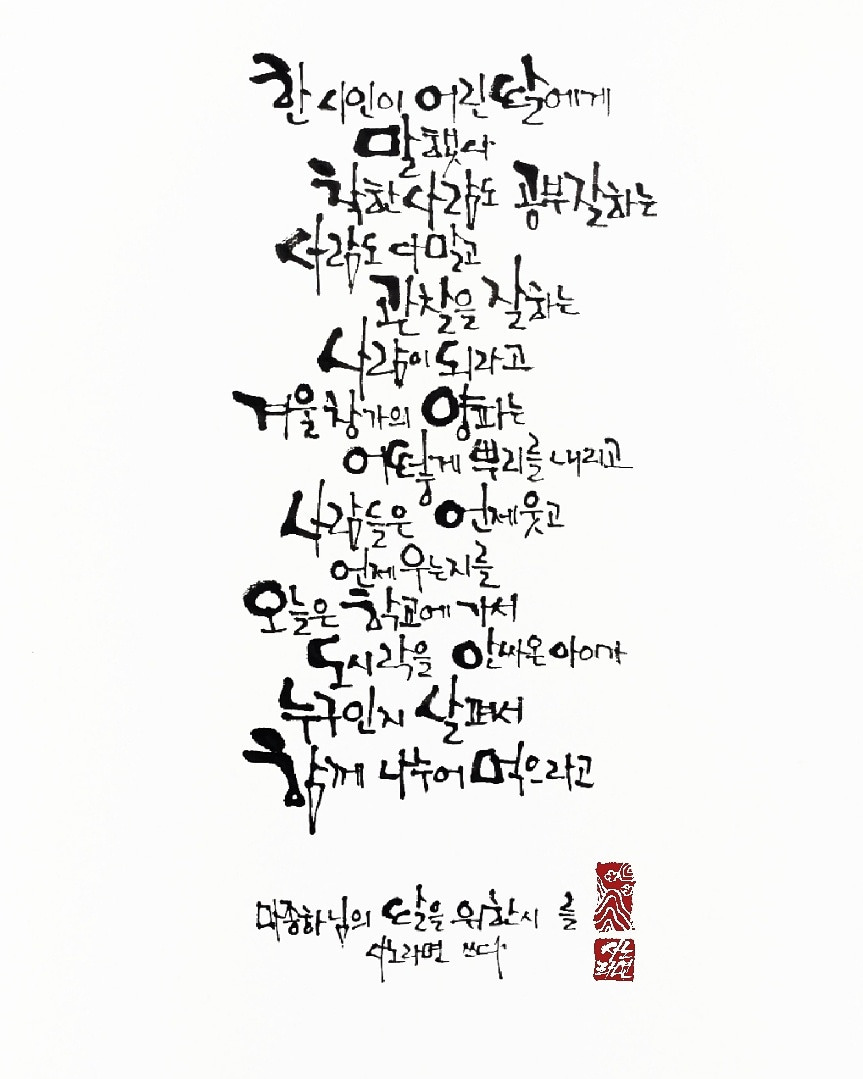 한 시인이 어린 딸에게
말했다
착한 사람도 공부 잘하는
사람도 다 말고
관찰을 잘하는
사람이 되라고
겨울 창가의 양파는
어떻게 뿌리를 내리고
사람들은 언제 웃고
언제 우는지를
오늘은 학교에 가서
도시락을 안 싸온 아이가
누구인지 살펴서
함께 나누어 먹으라고
마종하님의 딸을 위한 시 를
사노라면 쓰다